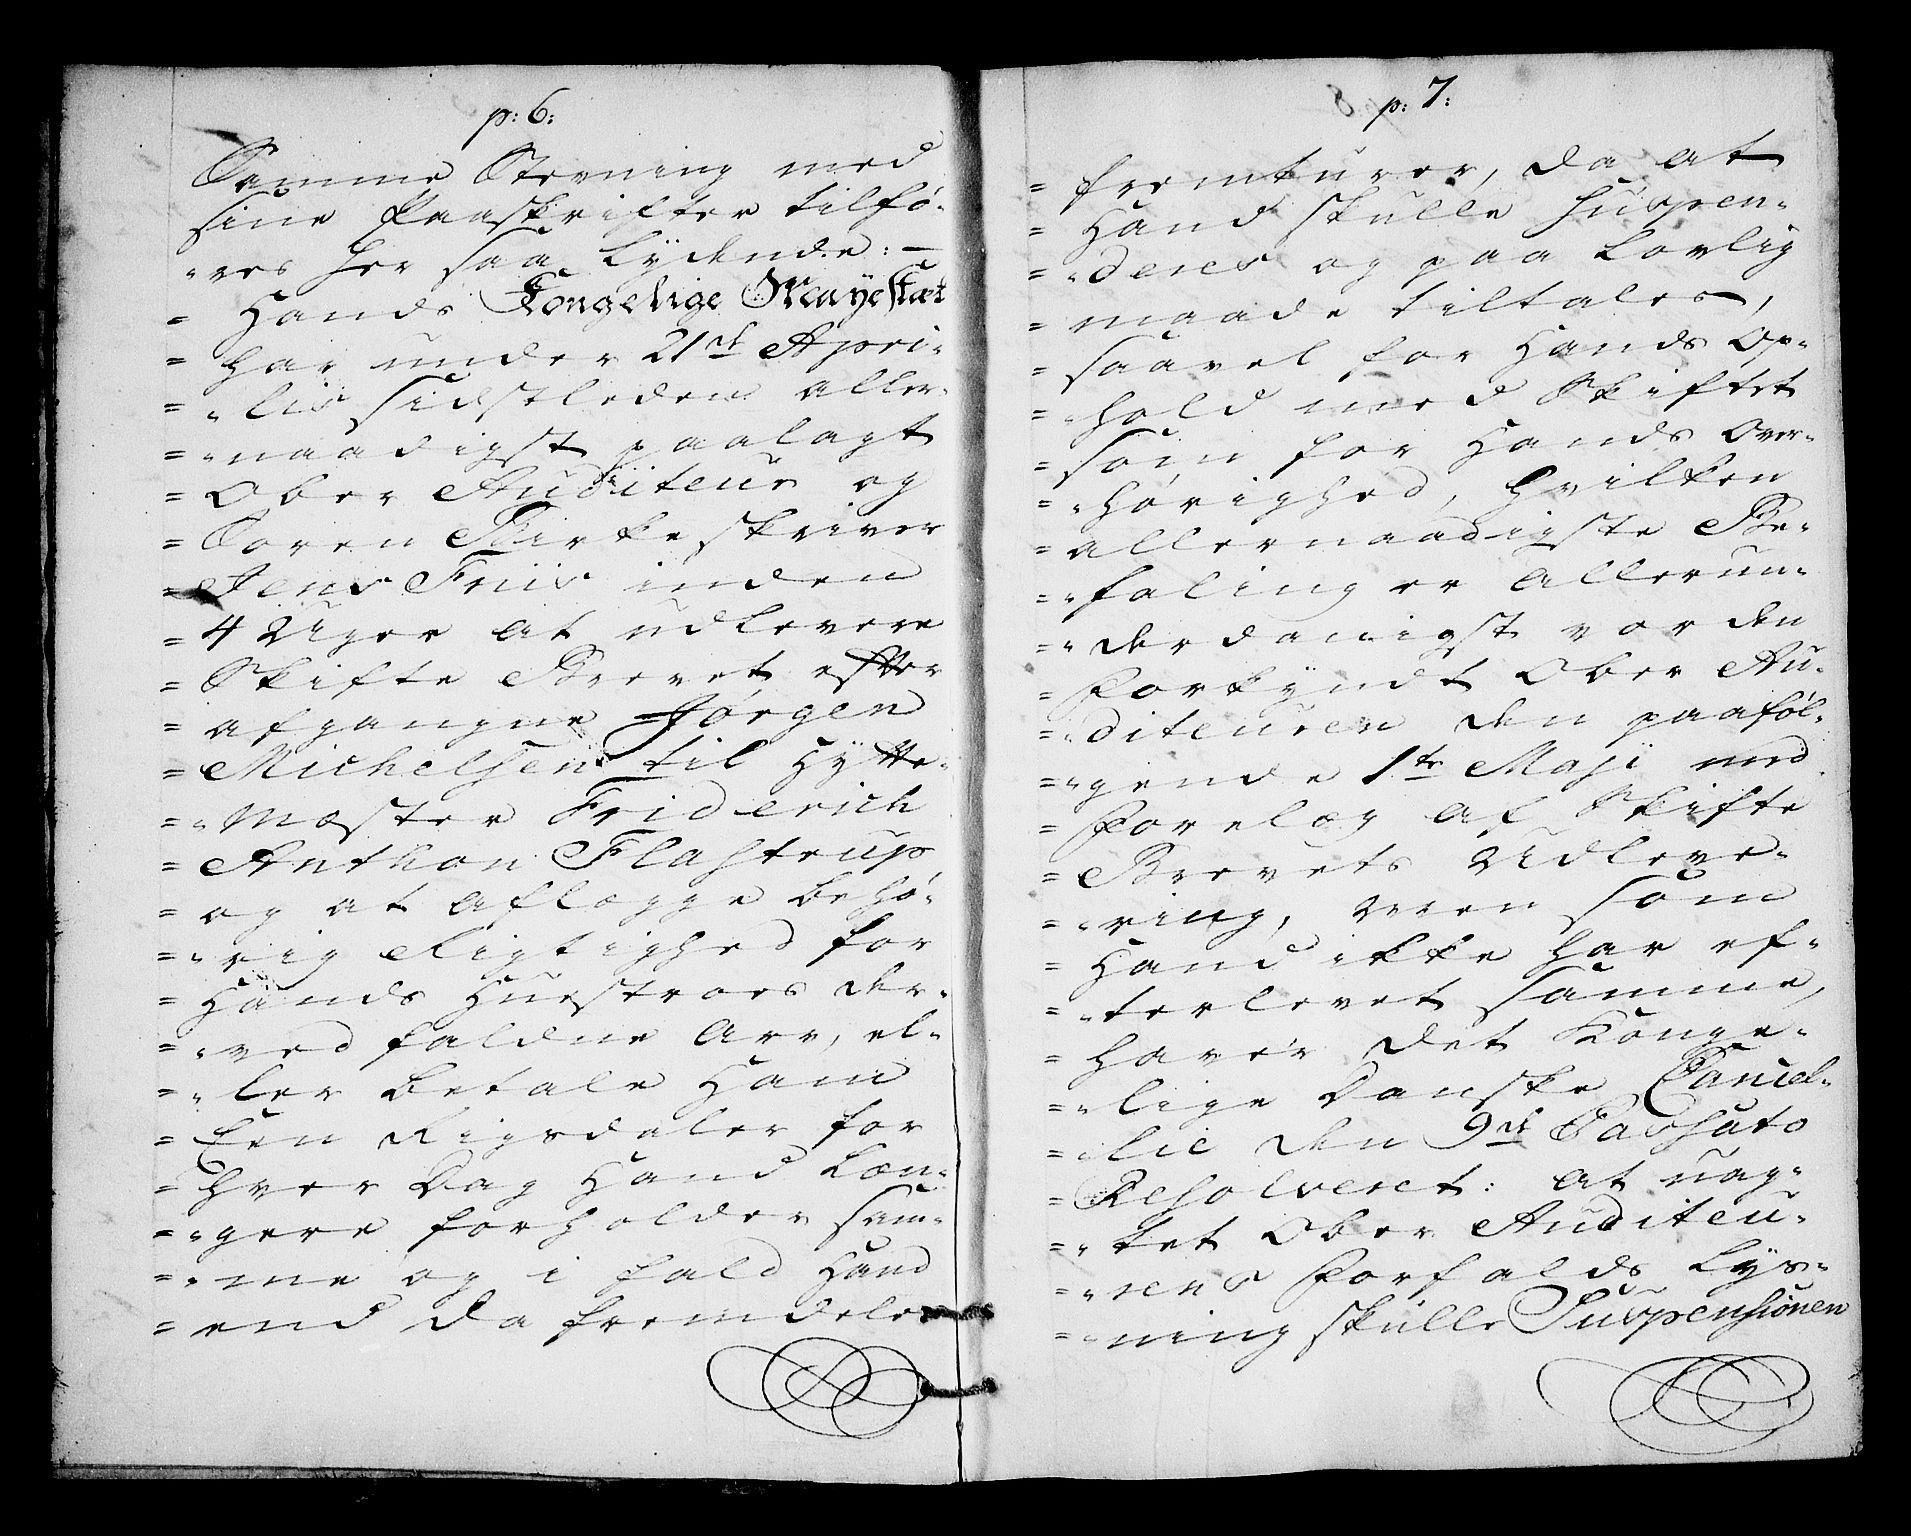 p: 6:
Samme Stevning med
sine Paaskrifter tilfø-
"res her saa Lydende: —
= Hands Kongelige Mayestæt
= har under 21de Apri-
= "lis sidstleden aller-
= "naadigst paalagt
= Ober Auditeur og
= Soren Birkeskriver
= Jens Friis inden
= 4 Uger at udlevere
= Skifte Brevet efter
= afgangne Jørgen
= Michelsen til Hytte-
= "Mæster Friderich
= Anthon Flastrup
= og at aflægge behø-
= "rig Rigtighed for
= Hands Huestroes der-
= "ved faldne Arv, el-
= "ler betale Ham
= Een Rigsdaler for
= hver Dag Hand Læn-
= "gere forholder sam-
= "me og i fald Hand
= end da fremdeles
p: 7:
= fremturer, da at
= Hand skulle suspen-
= "deres og paa Lovlig
= maade tiltales,
= saavel for Hands Op-
= "hold med Skiftet
= som for Hands Over-
= "hørighed, hvilken
= allernaadigste Be-
= "faling er allerun-
= "derdanigst vorden
= Forkyndt Ober Au-
= "diteuren den paaføl-
= "gende 1te Maji med
= Forelæg af Skifte
= Brevets Udleve-
= "ring, men som
= Hand ikke har ef-
= "terlevet samme,
= haver det Konge-
= "lige Danske Cancel-
= "lie den 9de Passato
= Resolveret: at uag-
= "tet Ober Auditeu-
= "rens Forfalds Lys-
= "ning skulle Suspensionen